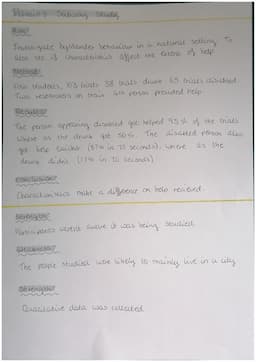 Piliavin's Subway Study
Aim:
Investigate bystander behaviour in a natural setting. To
also see if characteristics affect the extent of help
Method:
trials 38 trials drunk 65 trials disabled
Two researchers on train 4th person provided help
Results:
The person appearing disabled got helped 95% of the trials
where as the drunk got 50%. The disabled person also
got help quicker (87% in 70 seconds), where as the
drunk didn't (17% in 70 seconds)
Conclusion:
Characteristics make a difference on help received.
Strength:
Participants weren't aware it was being studied.
Weakness:
The people studied were likely to mainly live in a city
Strength:
Qualitative data was collected